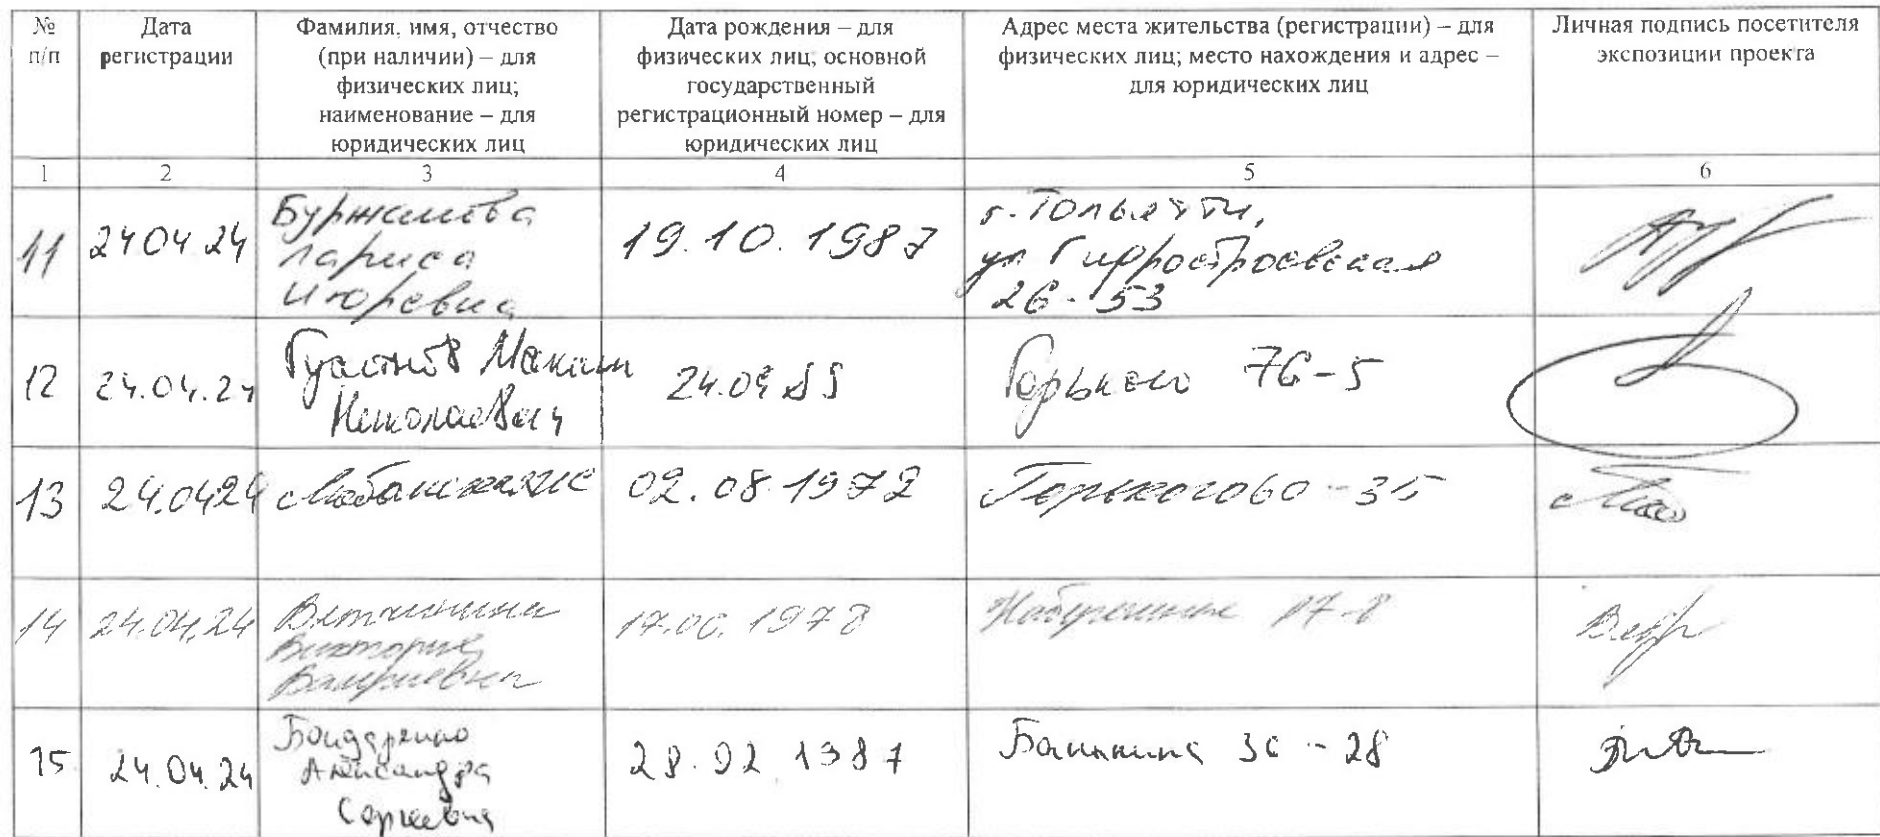 № п/п
Дата регистрации
Фамилия, имя, отчество (при наличии) – для физических лиц; наименование – для юридических лиц
Дата рождения – для физических лиц; основной государственный регистрационный номер – для юридических лиц
Адрес места жительства (регистрации) – для физических лиц; место нахождения и адрес – для юридических лиц
Личная подпись посетителя экспозиции проекта
1 2 3 4 5 6
11 24 04 24
Лариса
Игоревна
19.10.1987
г. Тольятти,
ул Гидростроевская
26-53
12 24.04.24
Николаевич
Горького 76-5
13 24.0424
02.08.1972
14 24.04.24
Виктория
Валерьевна
15 24.04.24
Бондаренко
Александра
Сергеевна
28.02 1987
Баныкина 36-28